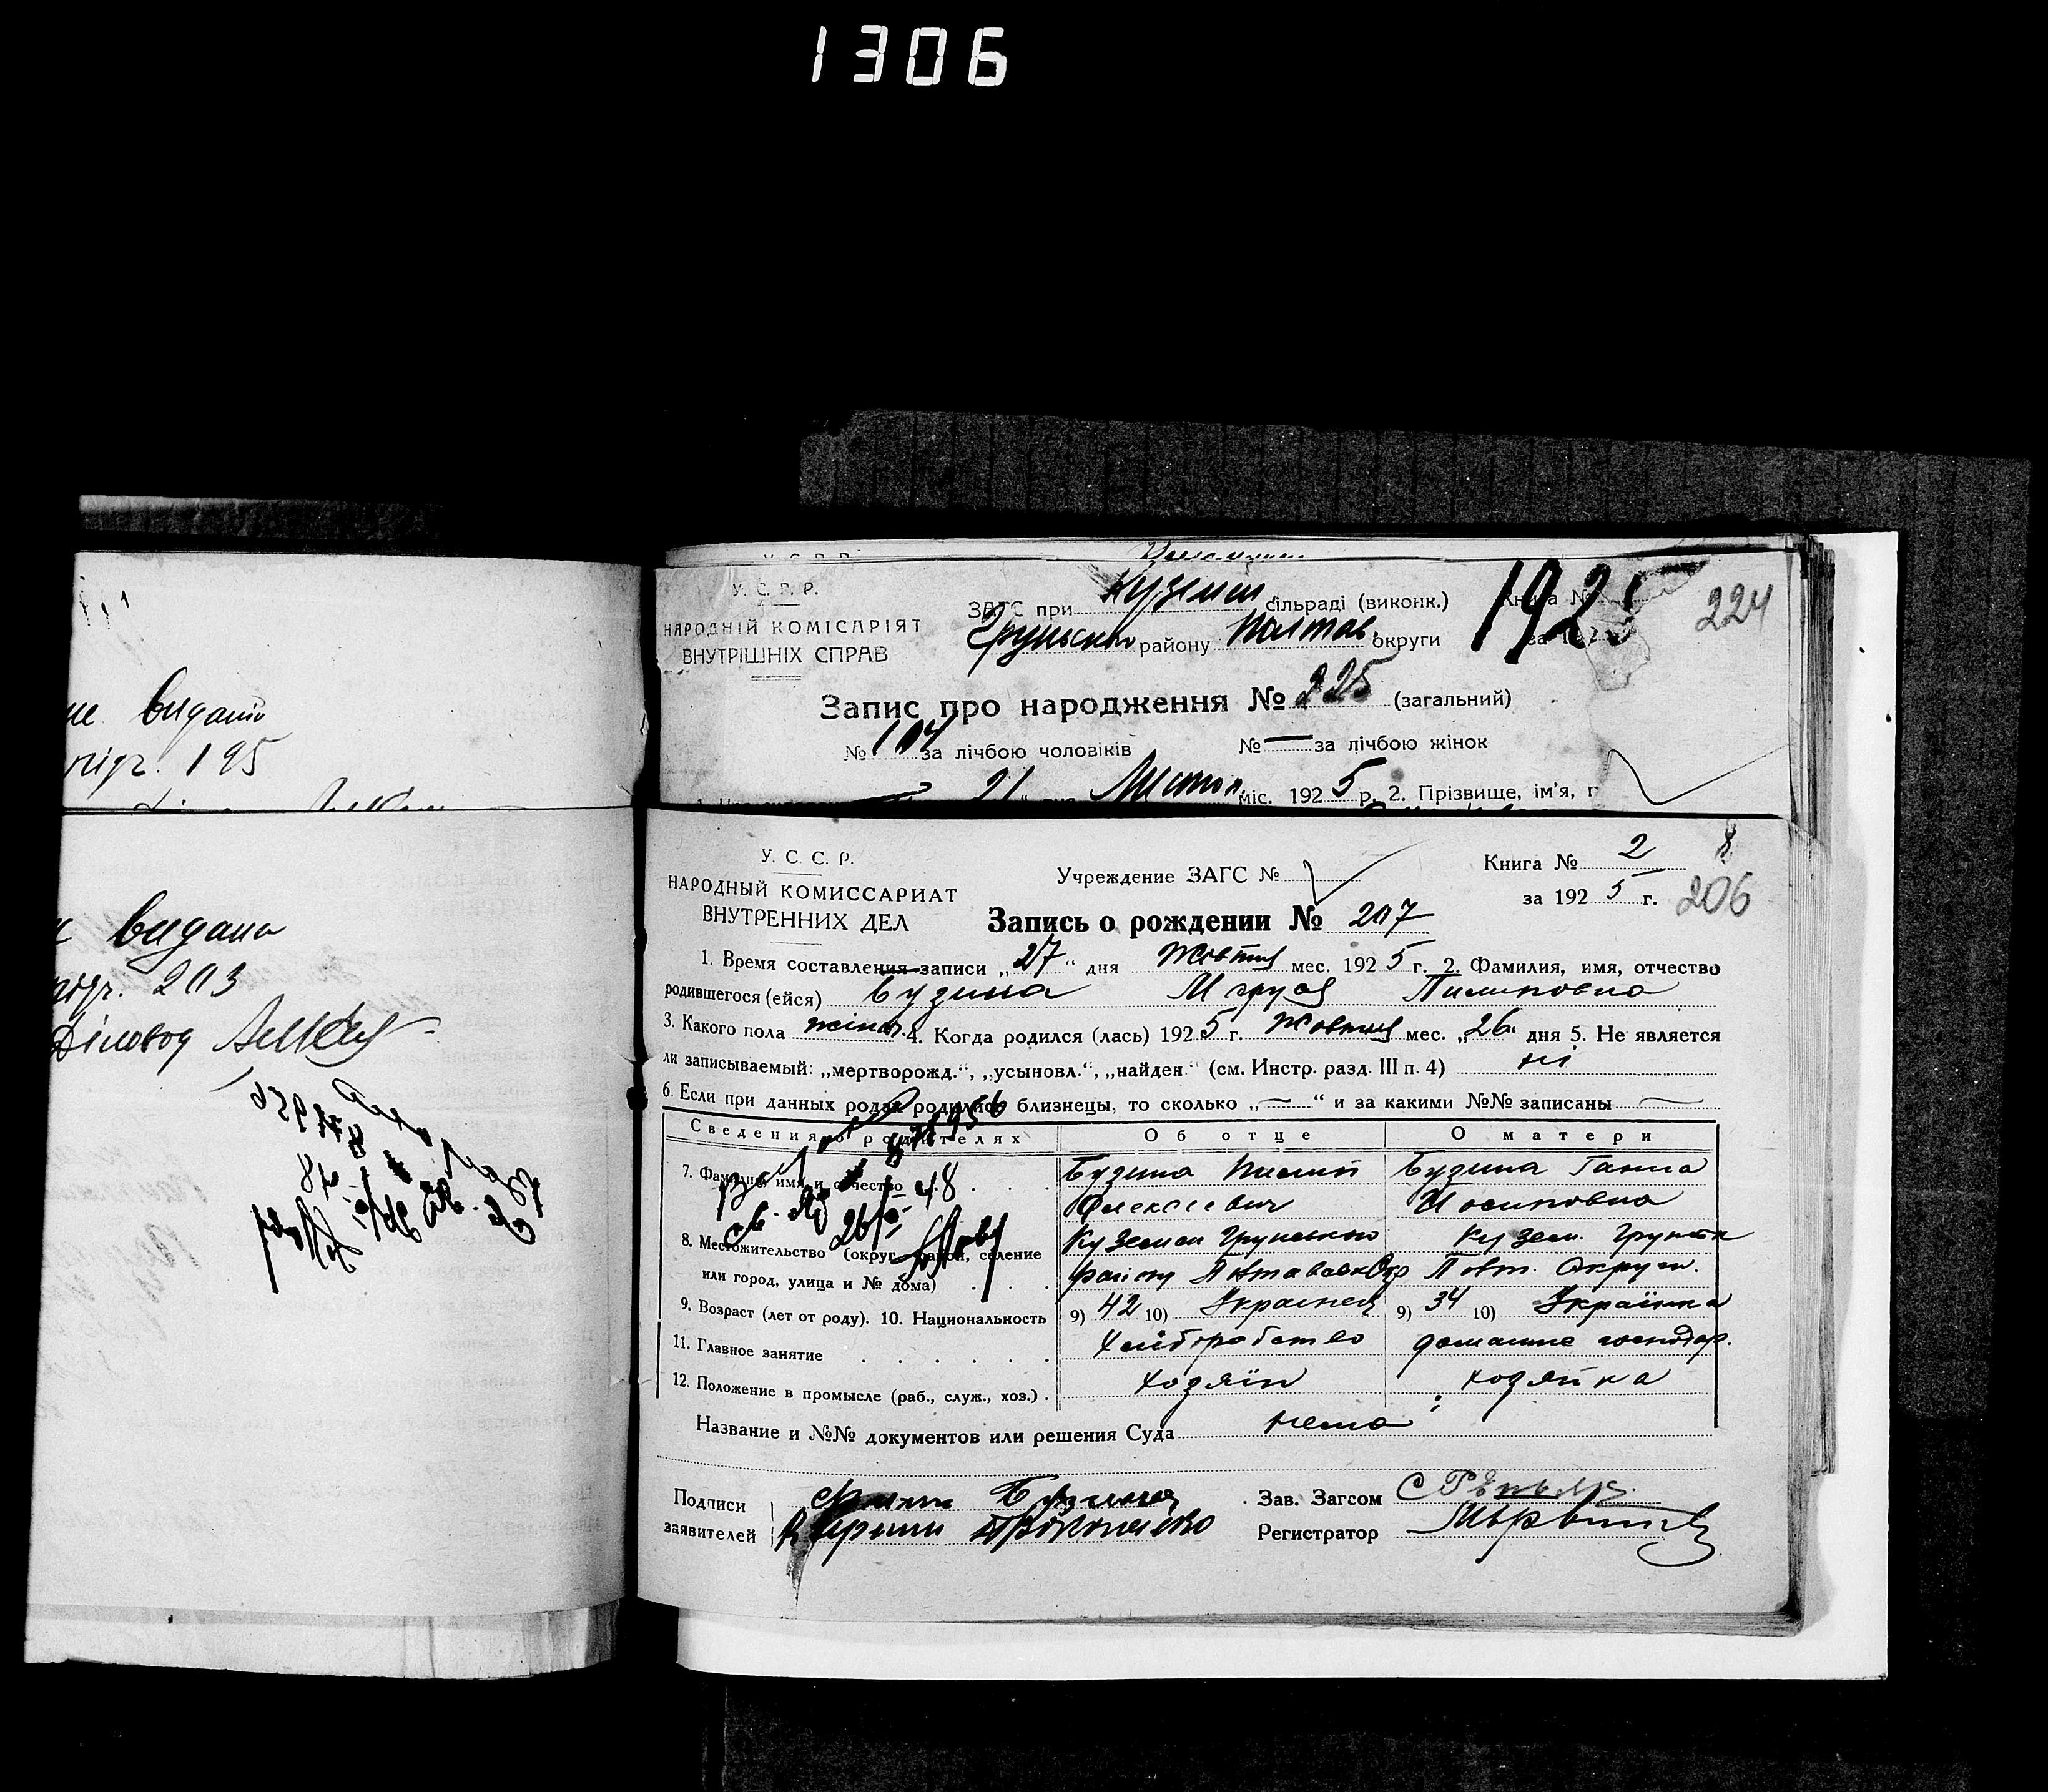 1306
не видано
підг. 195
видано
підг. 203
Діловод
У. С. Р. Р.
НАРОДНІЙ КОМІСАРІЯТ
ВНУТРІШНІХ СПРАВ
ЗАГС при Куземин сільраді (виконк.)
Грунськ району Полтав. округи
Книга №
1925
224
Запис про народження № 225 (загальний)
№ 104 за лічбою чоловіків № — за лічбою жінок
21 " дня Листоп. міс. 1925 р. 2. Прізвище, ім'я, п
У. С. С. Р.
НАРОДНЫЙ КОМИССАРИАТ
ВНУТРЕННИХ ДЕЛ
Учреждение ЗАГС №
Книга № 2
за 1925 г.
206
Запись о рождении № 207
1. Время составления записи „27" дня Жовтня мес. 1925 г. 2. Фамилия, имя, отчество
родившегося (ейся) Будина Пилиповна
3. Какого пола жіноч. 4. Когда родился (лась) 1925 г. Жовтня мес. „26" дня 5. Не является
ли записываемый: „мертворожд.", „усыновл.", „найден." (см. Инстр. разд. III п. 4) ні
6. Если при данных родах родились близнецы, то сколько „—" и за какими №№ записаны —
Сведения о родителях Об отце О матери
7. Фамилия имя и отчество Будина Пилип Будина Ганна
Олексіевич Иосиповна
8. Местожительство (округ, район, селение Куземин Грунського Кузем. Грунськ
или город, улица и № дома) району Полтавськ Окр Полт. Округи.
9. Возраст (лет от роду). 10. Национальность 9) 42 10) Українец 9) 34 10) Українка
11. Главное занятие Хліборобство домашне господар.
12. Положение в промысле (раб., служ., хоз.) хозяїн хозяйка
Название и №№ документов или решения Суда нема
Подписи
заявителей
Будина
Прокопенко
Зав. Загсом
Регистратор